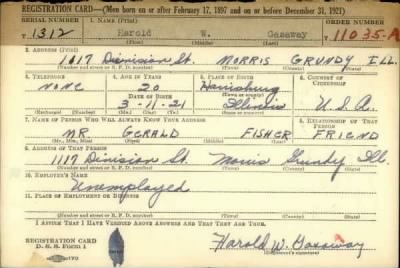 REGISTRATION CARD—(Men born on or after February 17, 1897 and on or before December 31, 1921)
SERIAL NUMBER 1. NAME (Print) ORDER NUMBER
T 1312 Harold W. Gasaway T 11035-A
(First) (Middle) (Last)
2. ADDRESS (Print)
1117 Division St. MORRIS GRUNDY ILL.
(Number and street or R. F. D. number) (Town) (County) (State)
3. TELEPHONE 4. AGE IN YEARS 5. PLACE OF BIRTH 6. COUNTRY OF CITIZENSHIP
NONE 20 Harrisburg
DATE OF BIRTH (Town or county)
3-11-21 Illinois U.S.A.
(Exchange) (No.) (Mo.) (Day) (Yr.) (State or country)
7. NAME OF PERSON WHO WILL ALWAYS KNOW YOUR ADDRESS 8. RELATIONSHIP OF THAT PERSON
MR. GERALD FISHER FRIEND
(Mr., Mrs., Miss) (First) (Middle) (Last)
9. ADDRESS OF THAT PERSON
1117 Division St. Morris Grundy Ill.
(Number and street or R. F. D. number) (Town) (County) (State)
10. EMPLOYER'S NAME
Unemployed
11. PLACE OF EMPLOYMENT OR BUSINESS
(Number and street or R. F. D. number) (Town) (County) (State)
I AFFIRM THAT I HAVE VERIFIED ABOVE ANSWERS AND THAT THEY ARE TRUE.
REGISTRATION CARD
D. S. S. Form 1
Harold W. Gasaway
(Registrant's signature)